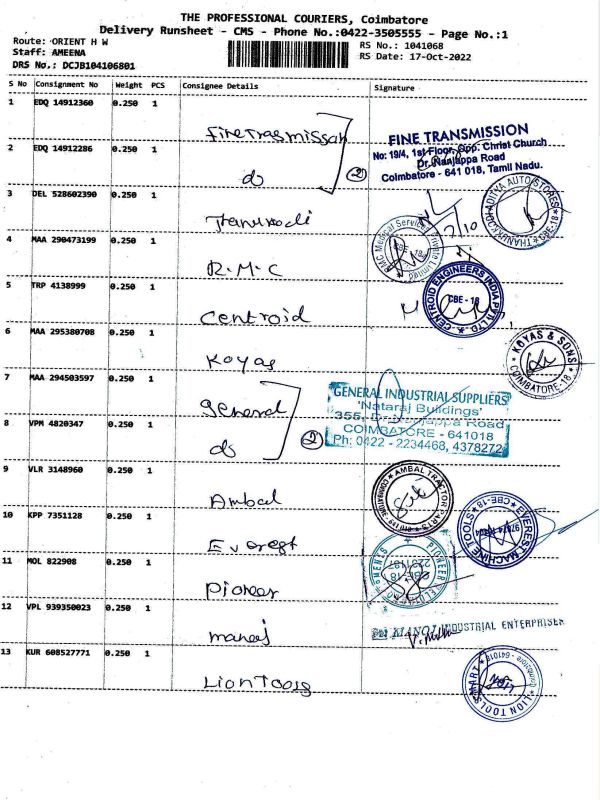 THE PROFESSIONAL COURIERS, Coimbatore
Delivery Runsheet - CMS - Phone No.:0422-3505555 - Page No.:1
Route: ORIENT H W
Staff: AMEENA
DRS No.: DCJB104106801
RS No.: 1041068
RS Date: 17-Oct-2022
S No Consignment No Weight PCS Consignee Details Signature
1 EDQ 14912360 0.250 1 Fine Trasmission
2 EDQ 14912286 0.250 1 do
(2)
FINE TRANSMISSION
No: 19/4, 1st Floor, Opp. Christ Church
Dr. Nanjappa Road
Coimbatore - 641 018, Tamil Nadu.
3 DEL 528602390 0.250 1
THANUKKODI ADITYA AUTO STORES
CBE-18
4 MAA 290473199 0.250 1 R.M.C
RMC Medical Services Private Limited
CBE - 18
5 TRP 4138999 0.250 1 Centroid
CENTROID ENGINEERS INDIA PVT LTD.
CBE - 18
6 MAA 295380708 0.250 1 Koyas
KOYAS & SONS
COIMBATORE-18
7 MAA 294503597 0.250 1 General
8 VPM 4820347 0.250 1 do
(2)
GENERAL INDUSTRIAL SUPPLIERS
'Nataraj Buildings'
355, Dr. Nanjappa Road
COIMBATORE - 641018
Ph: 0422 - 2234468, 4378272
9 VLR 3148960 0.250 1 Ambal
AMBAL TRACTOR PARTS
10 KPP 7351128 0.250 1 Everest
EVEREST MACHINE TOOLS
CBE-18
11 MOL 822908 0.250 1 Pioneer
PIONEER
CBE-18
12 VPL 939350023 0.250 1 manoj
MANOJ INDUSTRIAL ENTERPRISES
13 KUR 608527771 0.250 1 Lion Tools
LION TOOLS MART
Coimbatore - 641018